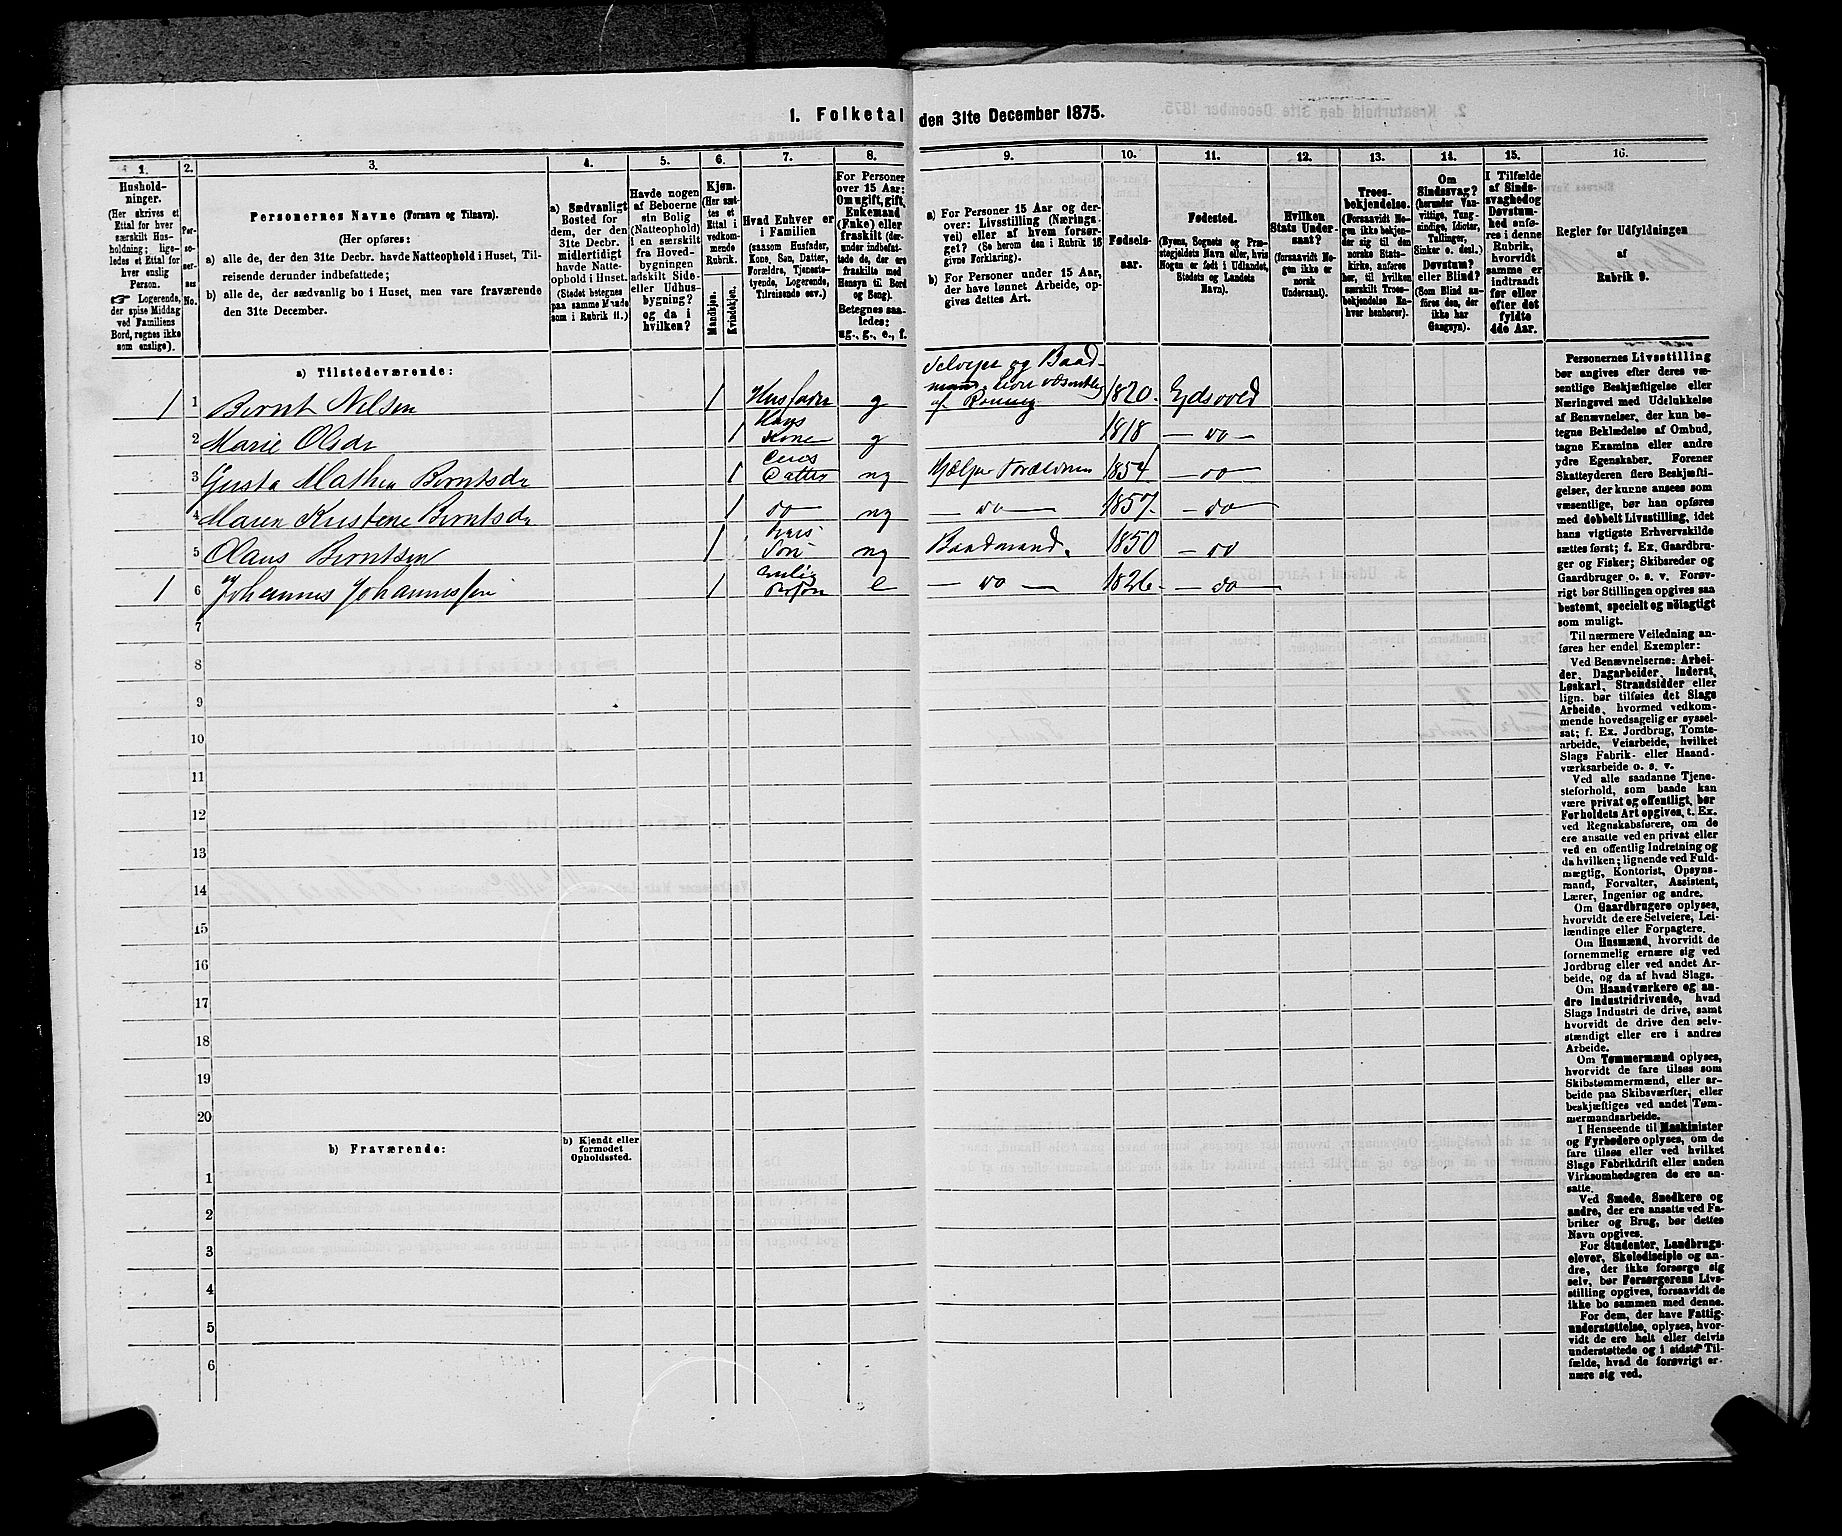 1. Folketal den 31te December 1875.
1.
2.
3.
4.
5.
6.
7.
8.
9.
10.
11.
12.
13.
14.
15.
16.
Hushold-
ninger.
(Her skrives et
Ettal for hver
særskilt Hus-
holdning; lige-
ledes et Ettal for
hver enslig
Person.
☞ Logerende,
der spise Middag
ved Familiens
Bord, regnes ikke
som enslige).
Per-
so-
ner-
nes
No.
Personernes Navne (Fornavn og Tilnavn).
(Her opføres:
a) alle de, der den 31te Decbr. havde Natteophold i Huset, Til-
reisende derunder indbefattede;
b) alle de, der sædvanlig bo i Huset, men vare fraværende
den 31te December.
a) Sædvanligt
Bosted for
dem, der den
31te Decbr.
midlertidigt
havde Natte-
ophold i Huset.
(Stedet betegnes
paa samme Maade
som i Rubrik 11.)
Havde nogen
af Beboerne
sin Bolig
(Natteophold)
i en særskilt
fra Hoved-
bygningen
adskilt Side-
eller Udhus-
bygning?
og da i
hvilken?
Kjøn.
(Her sæt-
tes et
Ettal i
vedkom-
mende
Rubrik.
Mandkjøn.
Kvindekjøn.
Hvad Enhver er
i Familien
(saasom Husfader,
Kone, Søn, Datter,
Forældre, Tjeneste-
tyende, Logerende,
Tilreisende osv.)
For Personer
over 15 Aar:
Om ugift, gift,
Enkemand
(Enke) eller
fraskilt (der-
under indbefat-
tede de, der ere
fraskilte med
Hensyn til Bord
og Seng).
Betegnes saa-
ledes:
ug., g., e., f.
a) For Personer 15 Aar og der-
over: Livsstilling (Nærings-
vei) eller af hvem forsør-
get? (Se herom den i Rubrik 16
givne Forklaring).
b) For Personer under 15 Aar,
der have lønnet Arbeide, op-
gives dettes Art.
Fødsels-
aar.
Fødested.
(Byens, Sognets og Præ-
stegjeldets Navn eller, hvis
Nogen er født i Udlandet,
Stedets og Landets
Navn).
Hvilken
Stats Under-
saat?
(forsaavidt No-
gen ikke er
norsk
Undersaat).
Troes-
bekjendelse.
(Forsaavidt No-
gen ikke bekjen-
der sig til den
norske Stats-
kirke, anføres
her, til hvilken
særskilt Troes-
bekjendelse En-
hver henhører).
Om
Sindssvag?
(herunder Van-
vittige, Tung-
sindige, Idioter,
Tullinger,
Sinker o. desl.)
Døvstum?
eller Blind?
(Som Blind an-
føres den, der
ikke har
Gangsyn).
I Tilfælde
af Sinds-
svaghed og
Døvstum-
hed anfø-
res i denne
Rubrik,
hvorvidt
samme er
indtraadt
før eller
efter det
fyldte
4de Aar.
Regler for Udfyldningen
af
Rubrik 9.
a) Tilstedeværende:
1 1 Bernt Nilsen 1 Husfader g Selveier og Baad- 1820 Eidsvold
2 Marie Olsdr 1 Hans Kone g 1818 — do —
3 Gusta Mathea Berntsdr 1 Deres Datter ug Hjelper Forældrene 1854 — do
4 Maren Kristene Berntsdr 1 do ug — do — 1857 — do
5 Olaus Berntsen 1 Deres Søn ug Baadmand 1850 — do
1 6 Johannes Johannessen 1 enslig Person e — do — 1826 — do
7
8
9
10
11
12
13
14
15
16
17
18
19
20
b) Fraværende:
b) Kjendt eller
formodet
Opholdssted.
1
2
3
4
5
6
Personernes Livsstilling
bør angives efter deres væ-
sentlige Beskjæftigelse eller
Næringsvei med Udelukkelse
af Benævnelser, der kun be-
tegne Beklædelse af Ombud,
tagne Examina eller andre
ydre Egenskaber. Forener
Skatteyderen flere Beskjæfti-
gelser, der kunne ansees som
væsentlige, bør han opføres
med dobbelt Livsstilling, idet
hans vigtigste Erhvervskilde
sættes først; f. Ex. Gaardbru-
ger og Fisker; Skibsreder og
Gaardbruger o. s. v. Forøv-
rigt bør Stillingen opgives saa
bestemt, specielt og nøiagtigt
som muligt.
Til nærmere Veiledning an-
føres her endel Exempler:
Ved Benævnelserne: Arbei-
der, Dagarbeider, Inderst,
Løskarl, Strandsidder eller
lign. bør tilføies det Slags
Arbeide, hvormed vedkom-
mende hovedsagelig er syssel-
sat; f. Ex. Jordbrug, Tomte-
arbeide, Veiarbeide, hvilket
Slags Fabrik- eller Haand-
værksarbeide o. s. v.
Ved alle saadanne Tjene-
steforhold, som baade kan
være privat og offentligt, bør
Forholdets Art opgives, t. Ex.
ved Regnskabsførere, om de
ere ansatte ved en privat eller
ved en offentlig Indretning og
da hvilken; lignende ved Fuld-
mægtig, Kontorist, Opsyns-
mand, Forvalter, Assistent,
Lærer, Ingeniør og andre.
Om Gaardbrugere oplyses,
hvorvidt de ere Selveiere, Lei-
lændinge eller Forpagtere.
Om Husmænd, hvorvidt de
fornemmelig ernære sig ved
Jordbrug eller ved andet Ar-
beide, og da af hvad Slags.
Om Haandværkere og an-
dre Industridrivende, hvad
Slags Industri de drive, samt
hvorvidt de drive den selv-
stændigt eller ere i andres
Arbeide.
Om Tømmermænd oplyses,
hvorvidt de fare tilsøs som
Skibstømmermænd, eller ar-
beide paa Skibsværfter, eller
beskjæftiges ved andet Tøm-
mermandsarbeide.
I Henseende til Maskinister
og Fyrbødere oplyses, om de
fare tilsøs eller ved hvilket
Slags Fabrikdrift eller anden
Virksomhedsgren de ere an-
satte.
Ved Smede, Snedkere og
andre, der ere ansatte ved Fa-
briker og Brug, bør dettes
Navn opgives.
For Studenter, Landbrugs-
elever, Skoledisciple og an-
dre, der ikke forsørge sig
selv, bør Forsørgerens Livs-
stilling opgives, forsaavidt de
ikke bo sammen med denne.
For dem, der have Fattig-
understøttelse, oplyses, hvor-
vidt de ere helt eller delvis
understøttede og i sidste Til-
fælde, hvad de forøvrigt er-
nære sig ved.